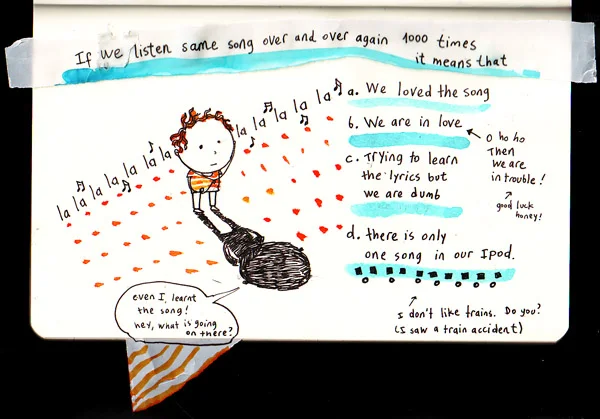 If we listen same song over and over again 1000 times
it means that
la la la la la la la la la la la la
a. We loved the song
b. We are in love
O ho ho
Then
we are
in trouble!
good luck
honey!
c. Trying to learn
the lyrics but
we are dumb
d. there is only
one song in our Ipod.
I don't like trains. Do you?
(I saw a train accident)
even I, learnt
the song!
hey, what is going
on there?